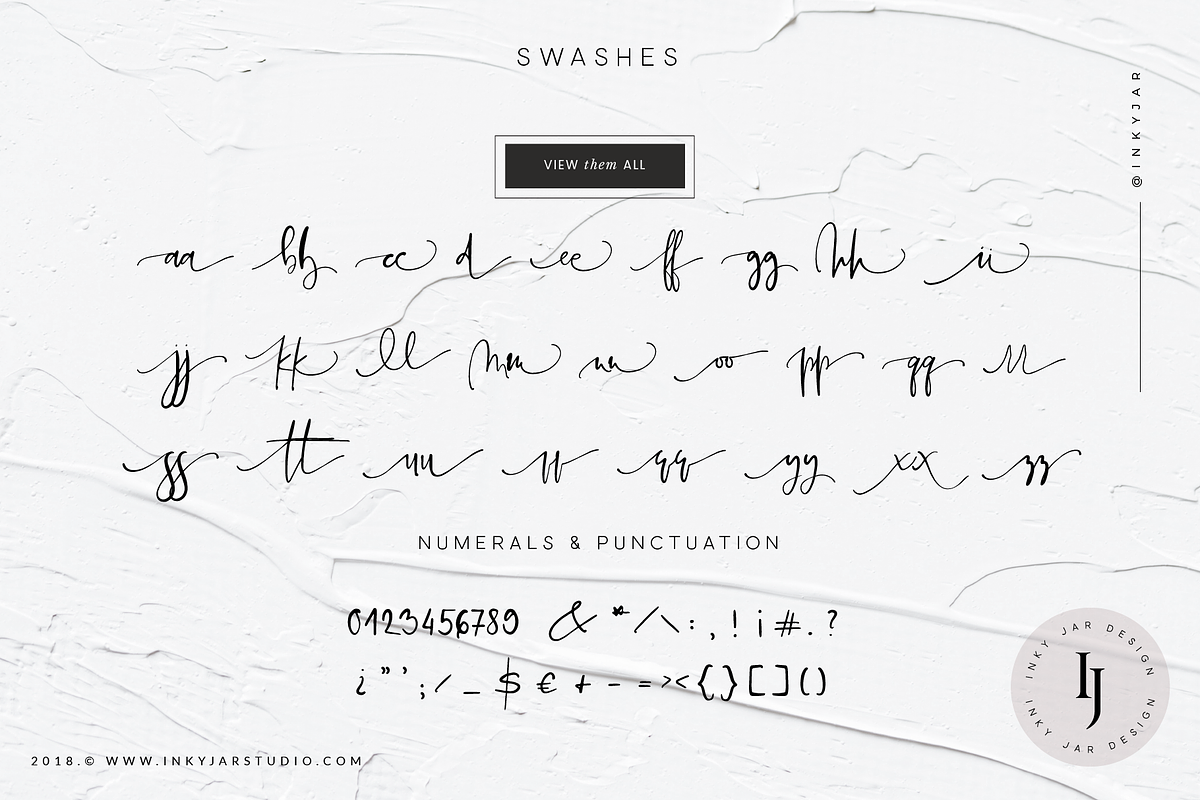 SWASHES
VIEW them ALL
@INKYJAR
aa bb cc d ee ff gg hh ii
jj kk ll mm nn oo pp qq rr
ss tt uu vv ww yy xx zz
NUMERALS & PUNCTUATION
0123456789 & * / \ : , ! ¡ # . ?
¿ " ' ; / _ $ € + - = > < { } [ ] ( )
INKY JAR DESIGN
IJ
INKY JAR DESIGN
2018.© WWW.INKYJARSTUDIO.COM